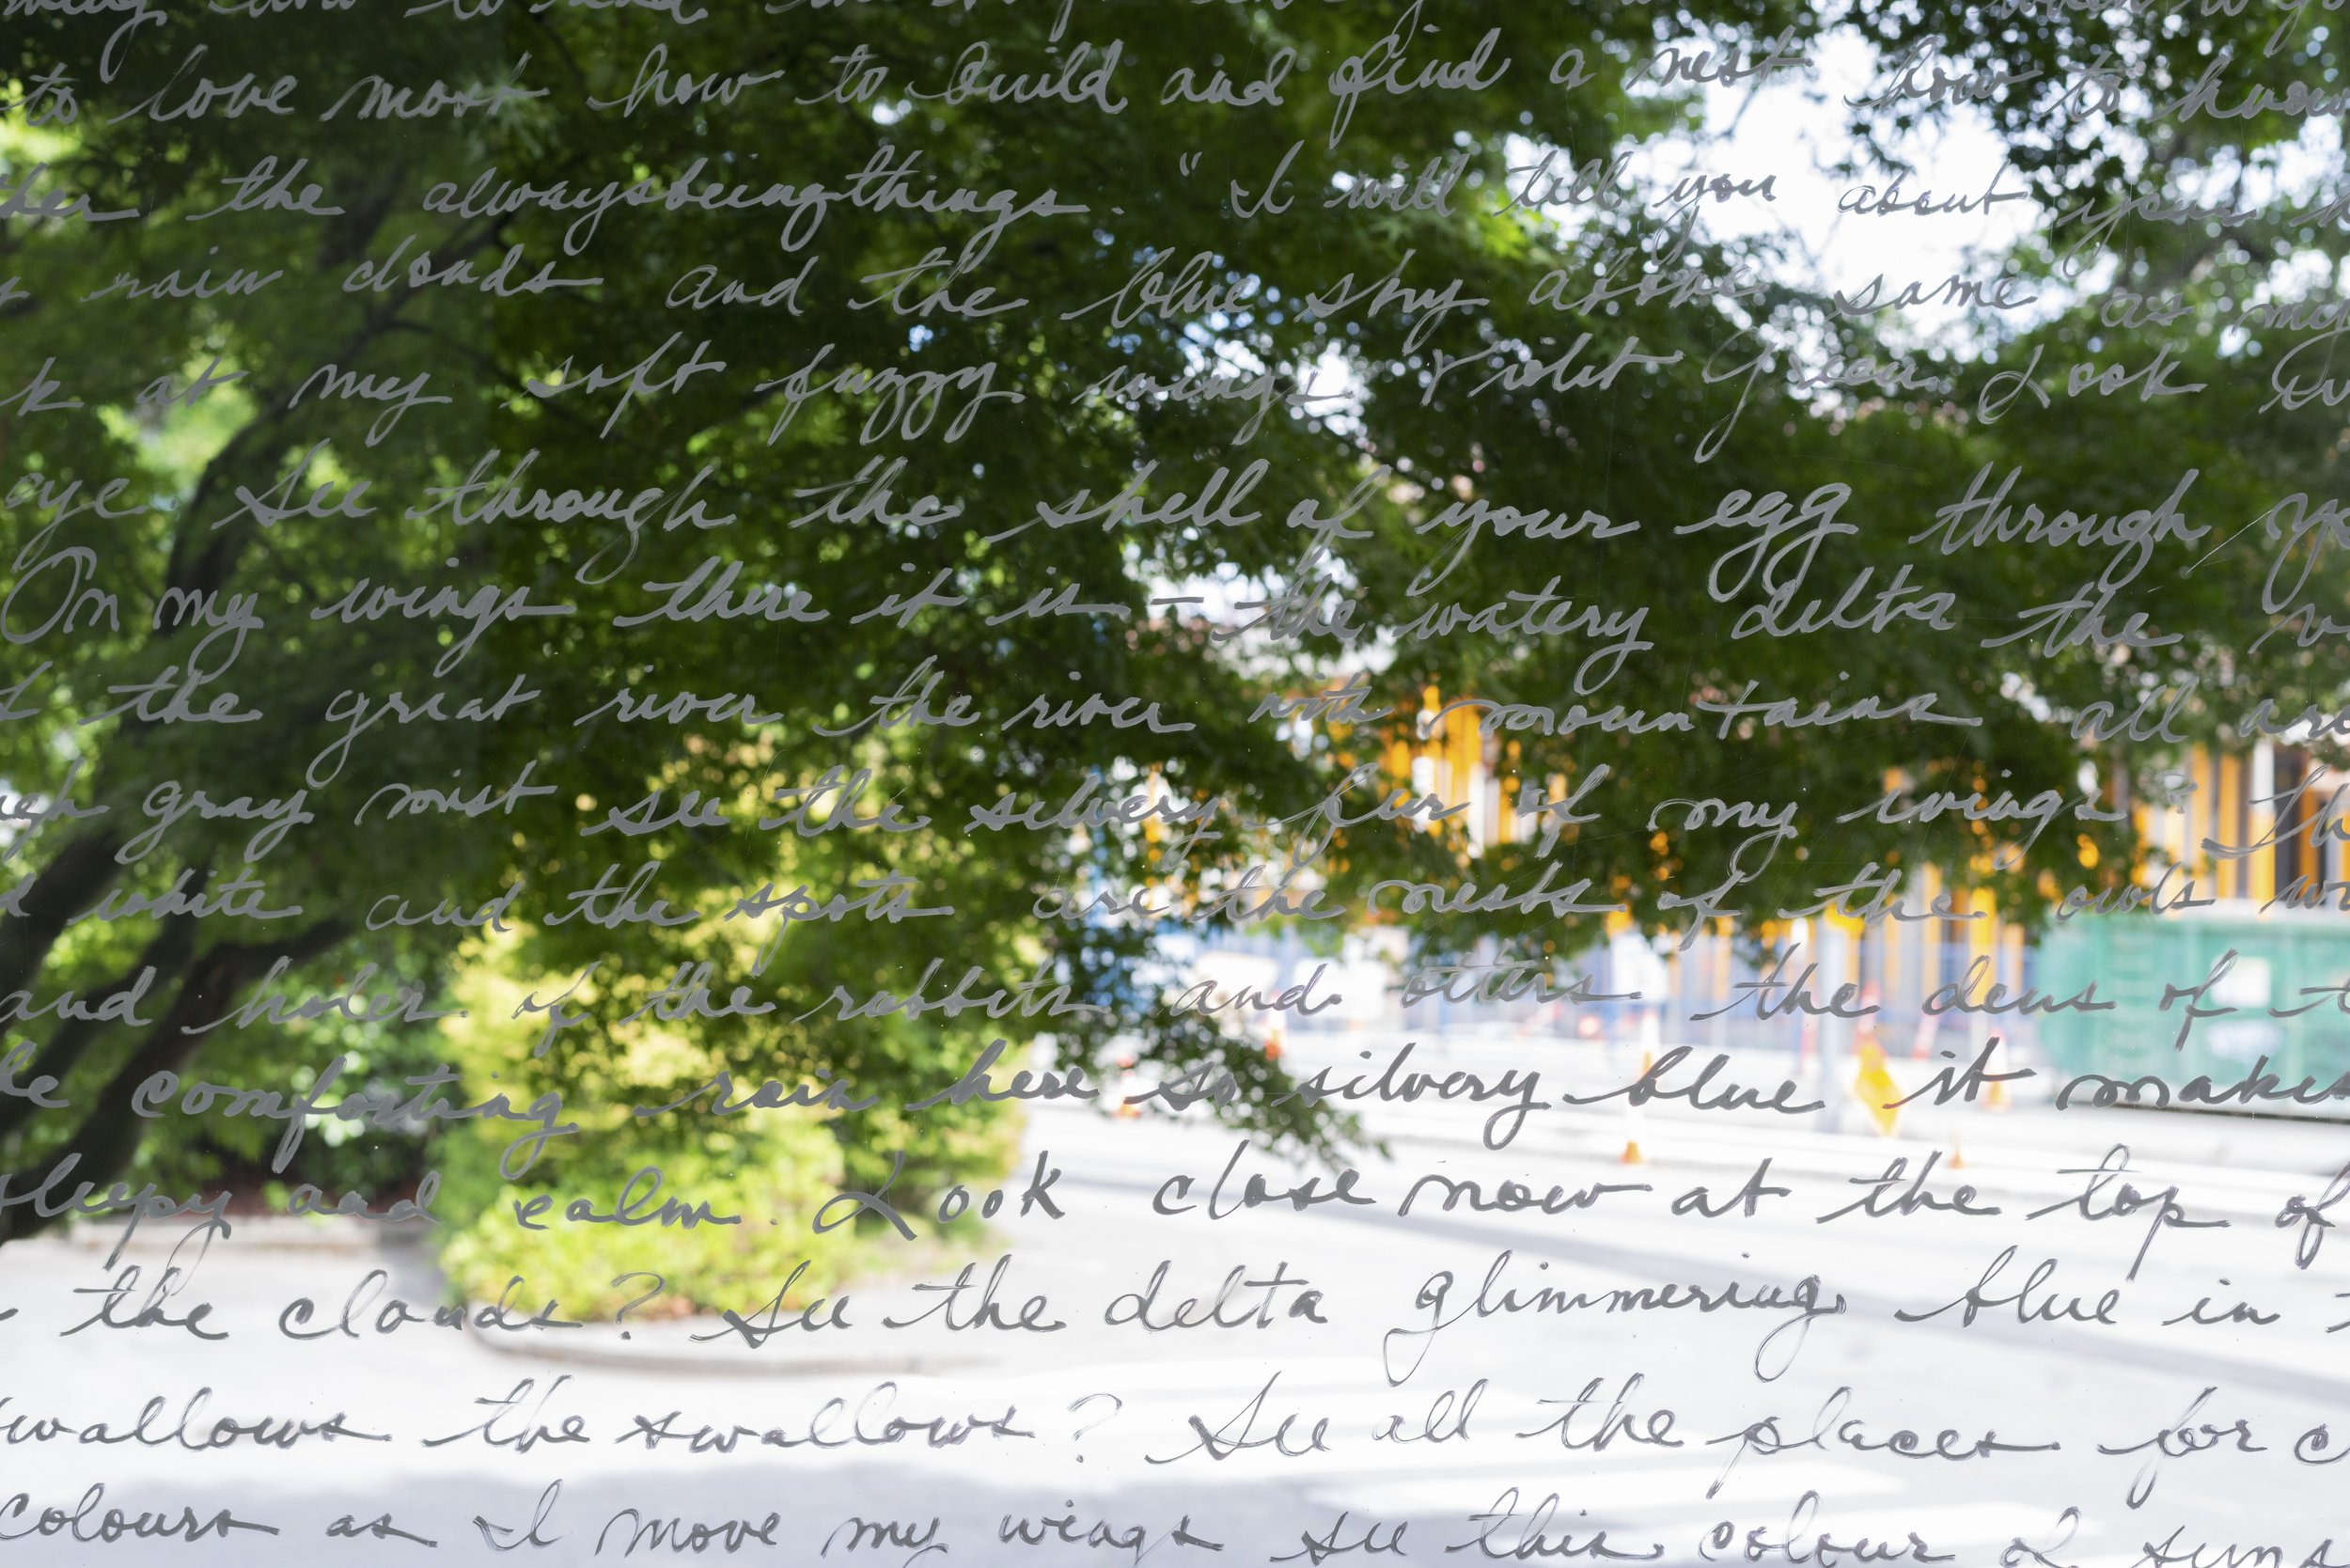 to love most how to build and find a nest how to know
the alwaysbeingthings. "I will tell you about your
rain clouds and the blue sky above same as my
at my soft fuzzy wings. Violet Green. Look
eye. See through the shell of your egg through
On my wings there it is - the watery delta the
the great river the river with mountains all
gray mist see the silvery fur of my wings?
white and the spots are the nests of the owls
and holes of the rabbits and otters the dens of
comforting rain here so silvery blue it makes
sleepy and calm. Look close now at the top of
the clouds? See the delta glimmering blue in
swallows the swallows? See all the places for
colours as I move my wings see this colour of